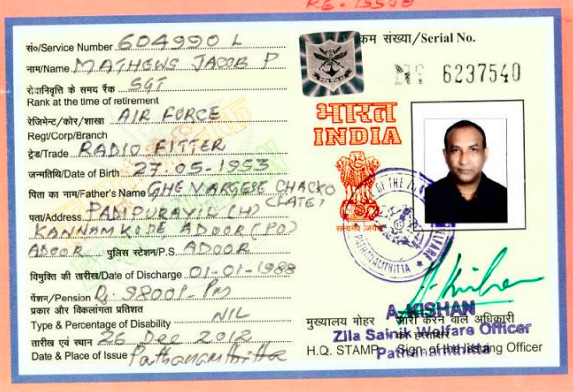 RE-ISSUE
सं०/Service Number 604990 L
नाम/Name MATHEWS JACOB P
सेवानिवृति के समय रैंक SGT
Rank at the time of retirement
रेजिमेन्ट/कोर/शाखा AIR FORCE
Regt/Corp/Branch
ट्रेड/Trade RADIO FITTER
जन्मतिथि/Date of Birth 27.05-1953
पिता का नाम/Father's Name GHEVARGESE CHACKO
(LATE)
पता/Address PADIPURAYIL (H)
KANNAMKODE ADOOR (PO)
ADOOR पुलिस स्टेशन/P.S. ADOOR
विमुक्ति की तारीख/Date of Discharge 01-01-1988
पेंशन/Pension PM
प्रकार और विकलांगता प्रतिशत
Type & Percentage of Disability NIL
तारीख एवं स्थान 26 DEC 2012
Date & Place of Issue Pathanamthitta
क्रम संख्या/Serial No.
Nº 6237540
भारत
INDIA
सत्यमेव जयते
PATHANAMTHITTA
A. KISHAN
मुख्यालय मोहर जारी करने वाले अधिकारी
Zila Sainik Welfare Officer
Pathanamthitta
H.Q. STAMP Sign of the Issuing Officer